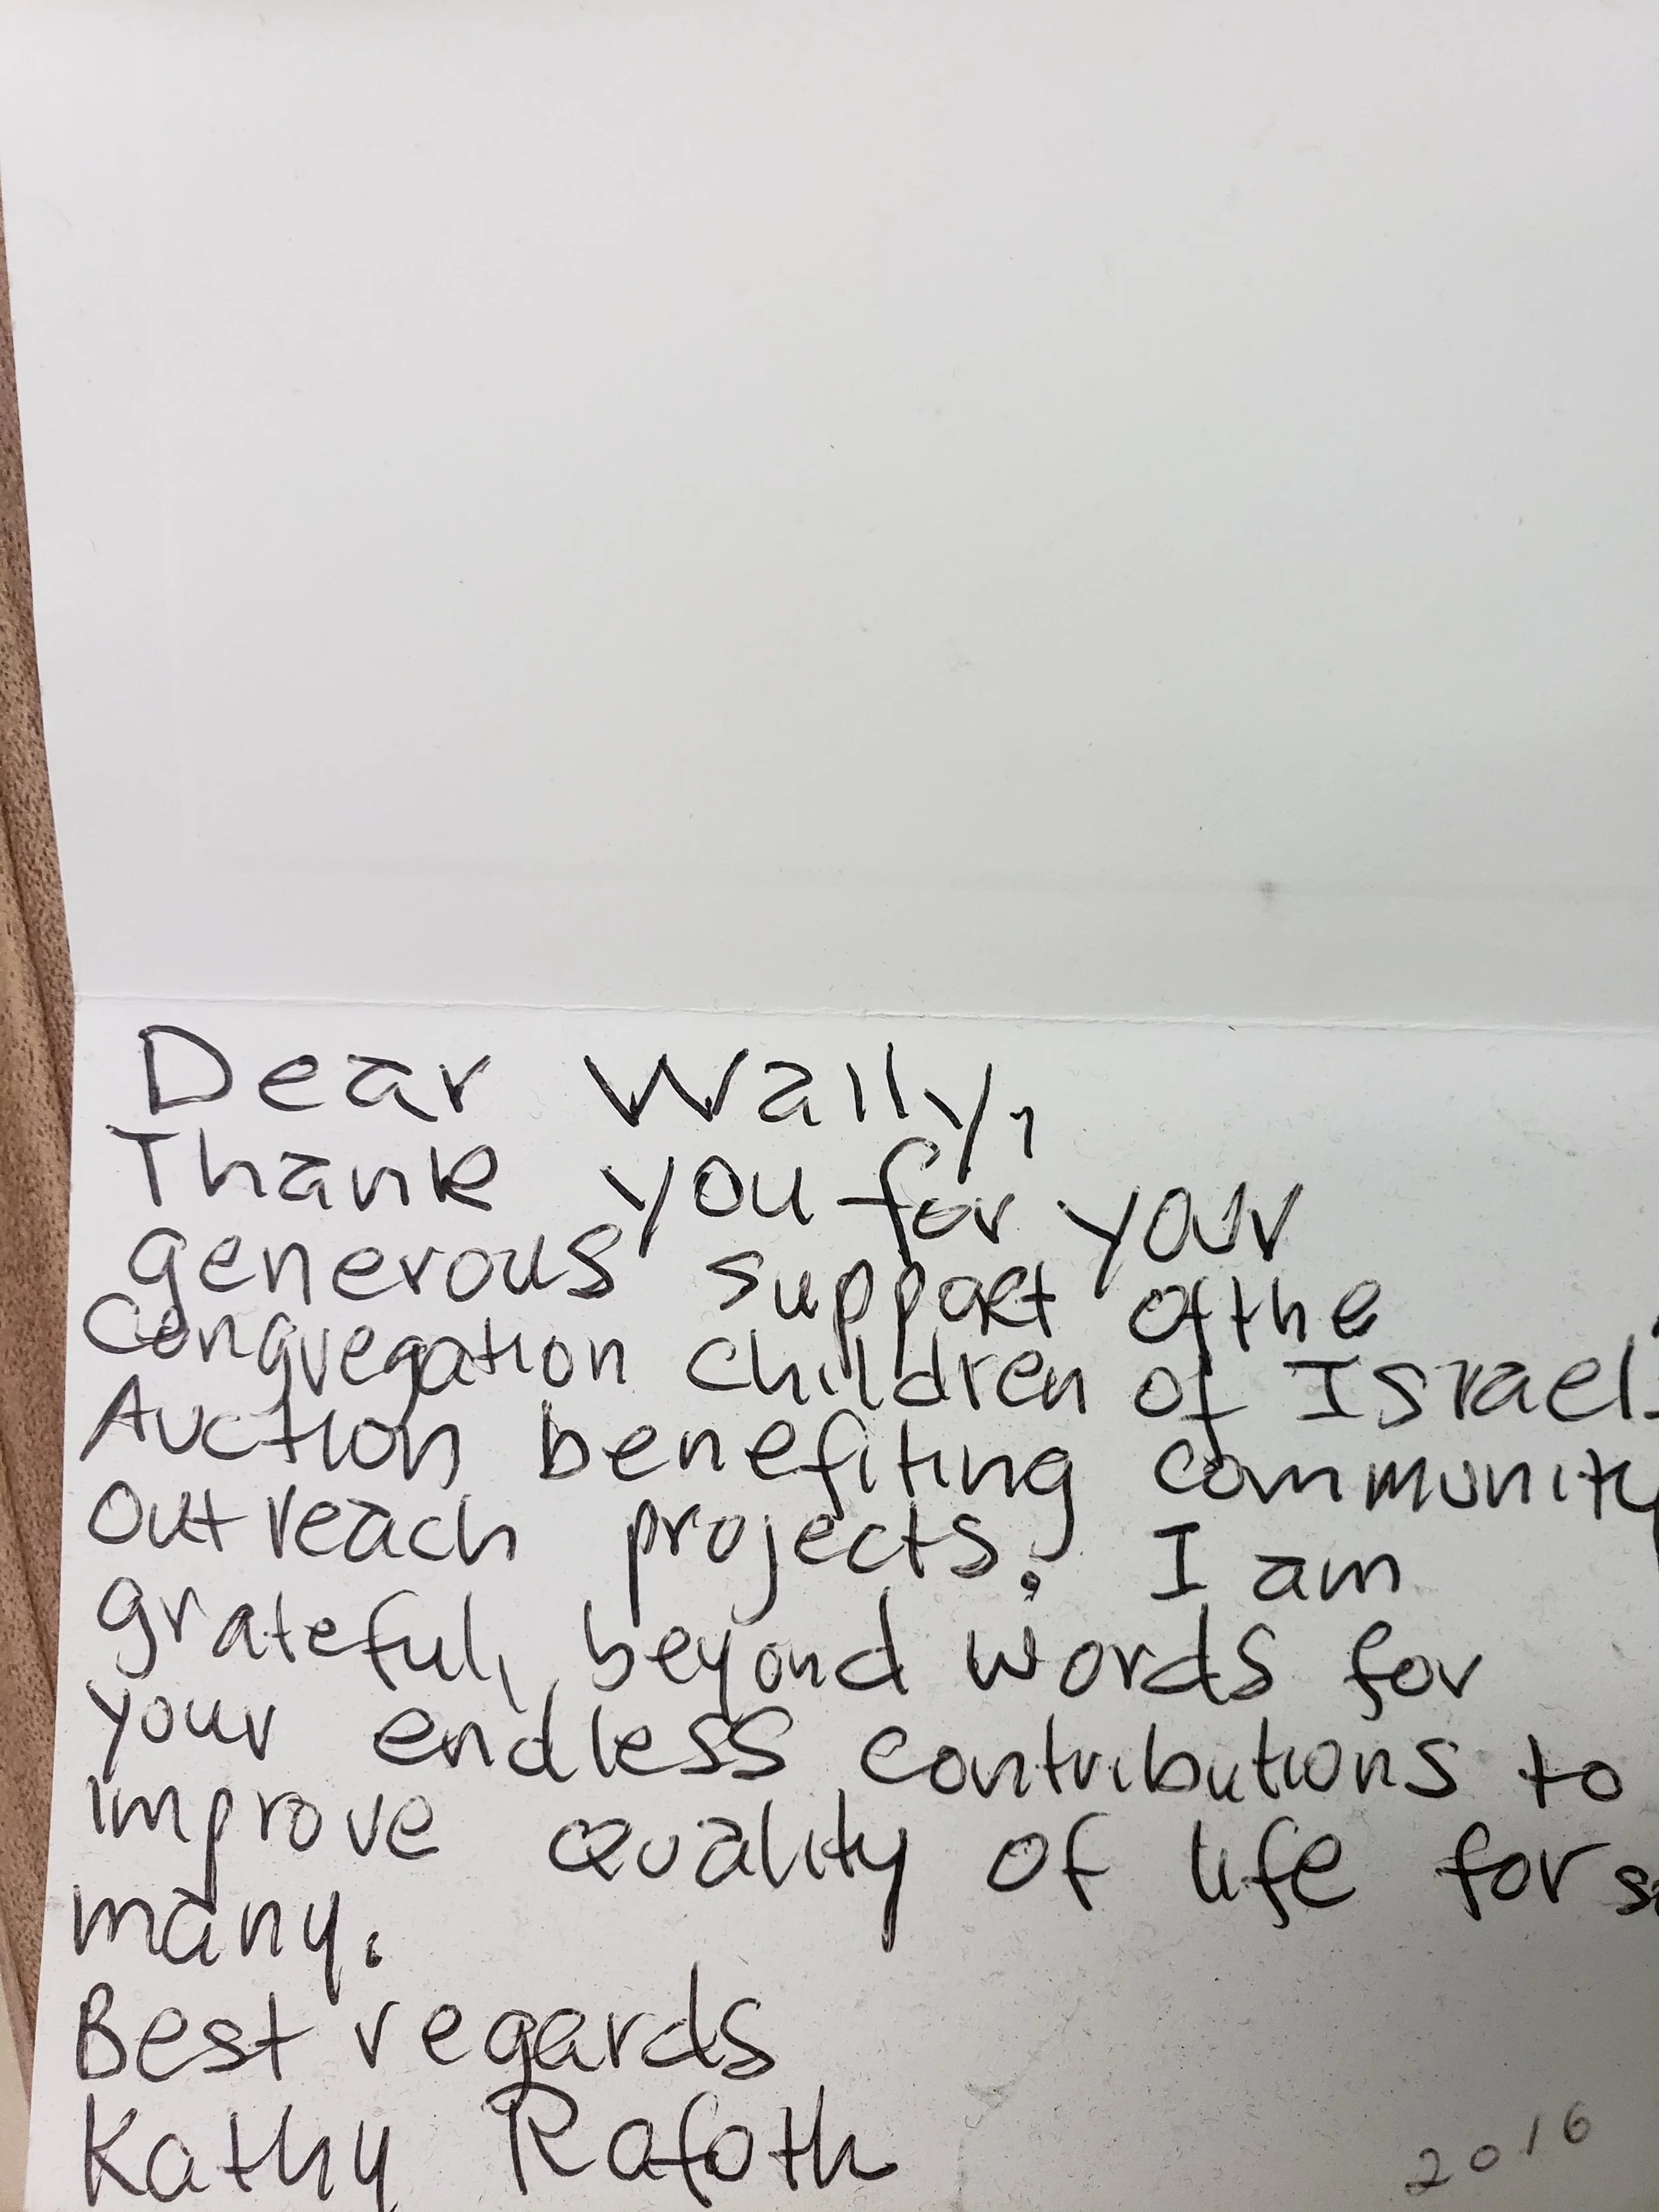 Dear Wally,
Thank you for your
generous support of the
Congregation Children of Israel
Auction benefiting community
outreach projects. I am
grateful, beyond words for
your endless contributions to
improve quality of life for
many.
Best regards
Kathy Rafoth
2016